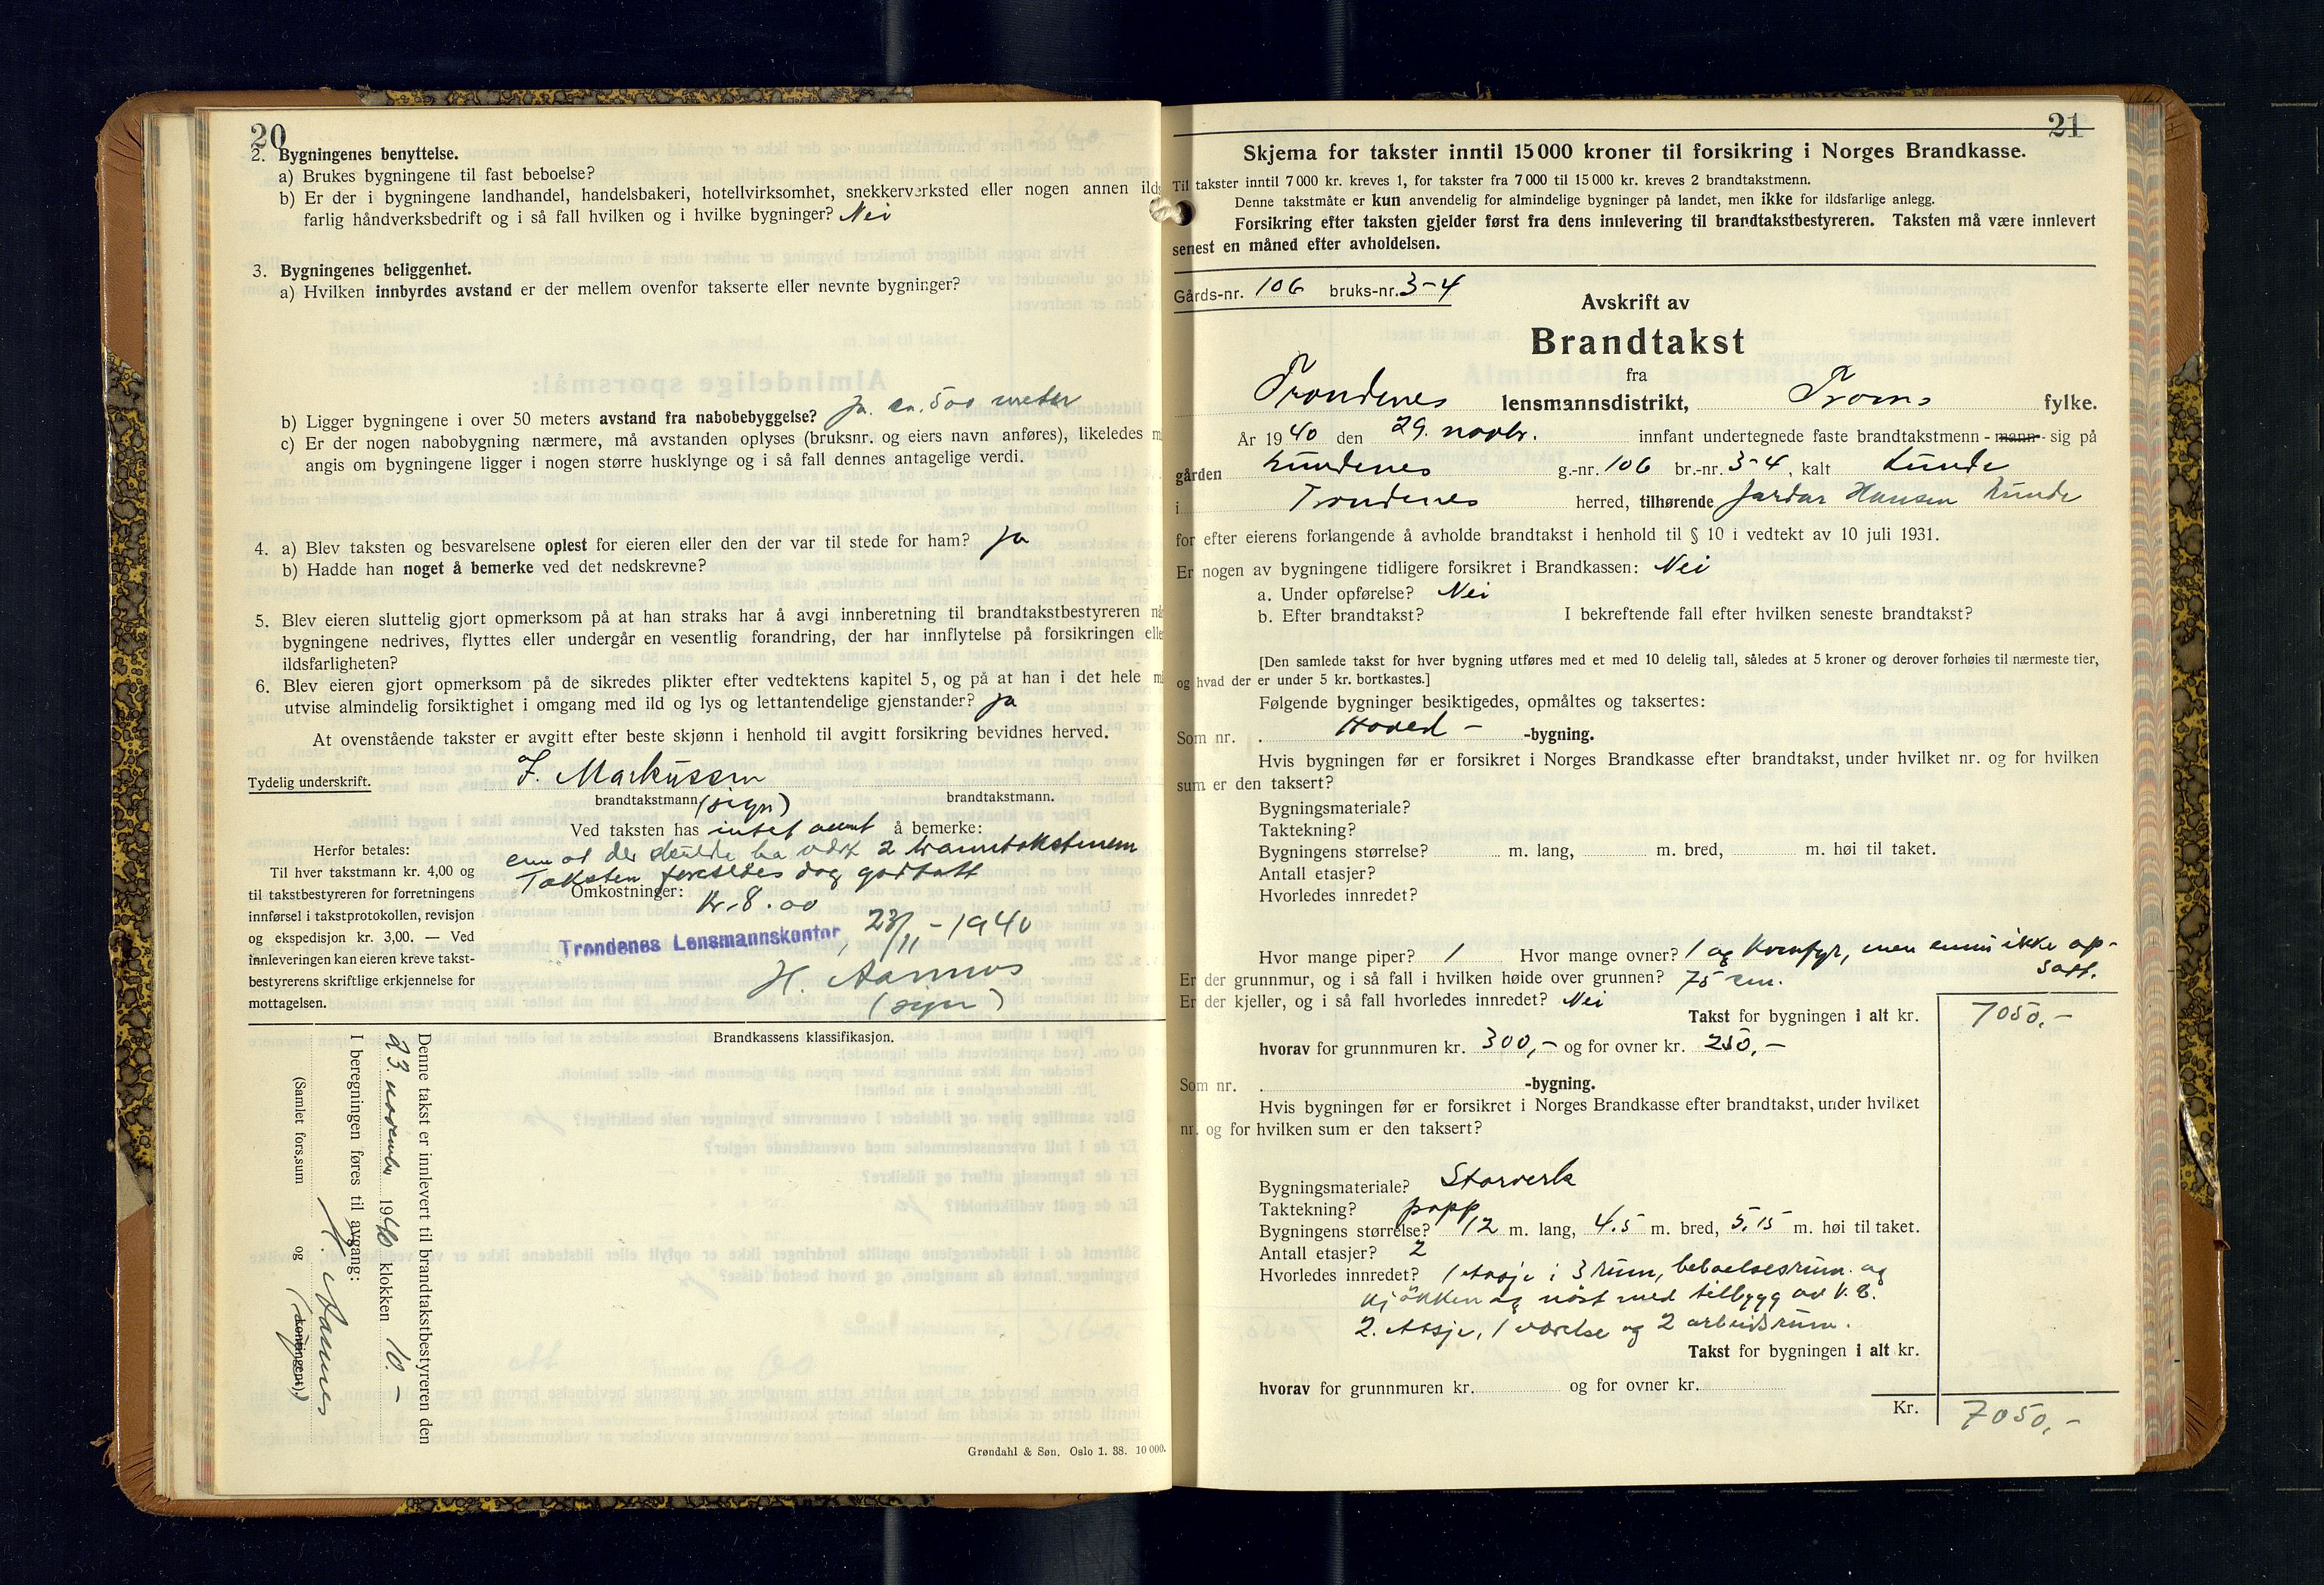 20
2. Bygningenes benyttelse.
a) Brukes bygningene til fast beboelse?
b) Er der i bygningene landhandel, handelsbakeri, hotellvirksomhet, snekkerverksted eller nogen annen ilds
farlig håndverksbedrift og i så fall hvilken og i hvilke bygninger? Nei
3. Bygningenes beliggenhet.
a) Hvilken innbyrdes avstand er der mellem ovenfor takserte eller nevnte bygninger?
b) Ligger bygningene i over 50 meters avstand fra nabobebyggelse? Ja. ca. 500 meter
c) Er der nogen nabobygning nærmere, må avstanden oplyses (bruksnr. og eiers navn anføres), likeledes m
angis om bygningene ligger i nogen større husklynge og i så fall dennes antagelige verdi.
4. a) Blev taksten og besvarelsene oplest for eieren eller den der var til stede for ham? Ja
b) Hadde han noget å bemerke ved det nedskrevne?
5. Blev eieren sluttelig gjort opmerksom på at han straks har å avgi innberetning til brandtakstbestyreren nå
bygningene nedrives, flyttes eller undergår en vesentlig forandring, der har innflytelse på forsikringen elle
ildsfarligheten?
6. Blev eieren gjort opmerksom på de sikredes plikter efter vedtektens kapitel 5, og på at han i det hele m
utvise almindelig forsiktighet i omgang med ild og lys og lettantendelige gjenstander? Ja
At ovenstående takster er avgitt efter beste skjønn i henhold til avgitt forsikring bevidnes herved.
Tydelig underskrift. J. Markussen
brandtakstmann (sign) brandtakstmann.
Ved taksten has intet annet å bemerke:
enn at der skulde ha vært 2 branntakstmenn
Taksten foreslåes dog godtatt
Omkostninger: Kr. 8.00
Herfor betales:
Til hver takstmann kr. 4,00 og
til takstbestyreren for forretningens
innførsel i takstprotokollen, revisjon
og ekspedisjon kr. 3,00. — Ved
innleveringen kan eieren kreve takst-
bestyrerens skriftlige erkjennelse for
mottagelsen.
Trondenes Lensmannskontor, 23/11-1940
H. Aarnes
(sign)
Brandkassens klassifikasjon.
Denne takst er innlevert til brandtakstbestyreren den
23. november 1940 klokken 10.-
I beregningen føres til avgang:
H. Aarnes
(Samlet fors.sum og kontingent)
Grøndahl & Søn. Oslo 1. 38. 10 000.
21
Skjema for takster inntil 15000 kroner til forsikring i Norges Brandkasse.
Til takster inntil 7 000 kr. kreves 1, for takster fra 7 000 til 15 000 kr. kreves 2 brandtakstmenn.
Denne takstmåte er kun anvendelig for almindelige bygninger på landet, men ikke for ildsfarlige anlegg.
Forsikring efter taksten gjelder først fra dens innlevering til brandtakstbestyreren. Taksten må være innlevert
senest en måned efter avholdelsen.
Gårds-nr. 106 bruks-nr. 3-4
Avskrift av
Brandtakst
fra
Trondenes lensmannsdistrikt, Troms fylke.
År 1940 den 29. novbr. innfant undertegnede faste brandtakstmenn - mann - sig på
gården Lundenes g.-nr. 106 br.-nr. 3-4, kalt Lunde
i Trondenes herred, tilhørende Jardar Hansen Lunde
for efter eierens forlangende å avholde brandtakst i henhold til § 10 i vedtekt av 10 juli 1931.
Er nogen av bygningene tidligere forsikret i Brandkassen: Nei
a. Under opførelse? Nei
b. Efter brandtakst? I bekreftende fall efter hvilken seneste brandtakst?
[Den samlede takst for hver bygning utføres med et med 10 delelig tall, således at 5 kroner og derover forhøies til nærmeste tier,
og hvad der er under 5 kr. bortkastes.]
Følgende bygninger besiktigedes, opmåltes og taksertes:
Som nr. Hoved - -bygning.
Hvis bygningen før er forsikret i Norges Brandkasse efter brandtakst, under hvilket nr. og for hvilken
sum er den taksert?
Bygningsmateriale?
Taktekning?
Bygningens størrelse? m. lang, m. bred, m. høi til taket.
Antall etasjer?
Hvorledes innredet?
Hvor mange piper? 1 Hvor mange ovner? 1 og komfyr, men ennu ikke op-
satt.
Er der grunnmur, og i så fall i hvilken høide over grunnen? 75 cm.
Er der kjeller, og i så fall hvorledes innredet? Nei
Takst for bygningen i alt kr. 7050,-
hvorav for grunnmuren kr. 300,- og for ovner kr. 250,-
Som nr. -bygning.
Hvis bygningen før er forsikret i Norges Brandkasse efter brandtakst, under hvilket
nr. og for hvilken sum er den taksert?
Bygningsmateriale? Stavverk
Taktekning? papp
Bygningens størrelse? 12 m. lang, 4.5 m. bred, 5.15 m. høi til taket.
Antall etasjer? 2
Hvorledes innredet? 1 etasje i 3 rum, beboelsesrum og
kjökken og nöst med tilbygg av V. B.
2. etasje, 1 værelse og 2 arbeidsrum.
Takst for bygningen i alt kr.
hvorav for grunnmuren kr. og for ovner kr.
Kr. 7050,-